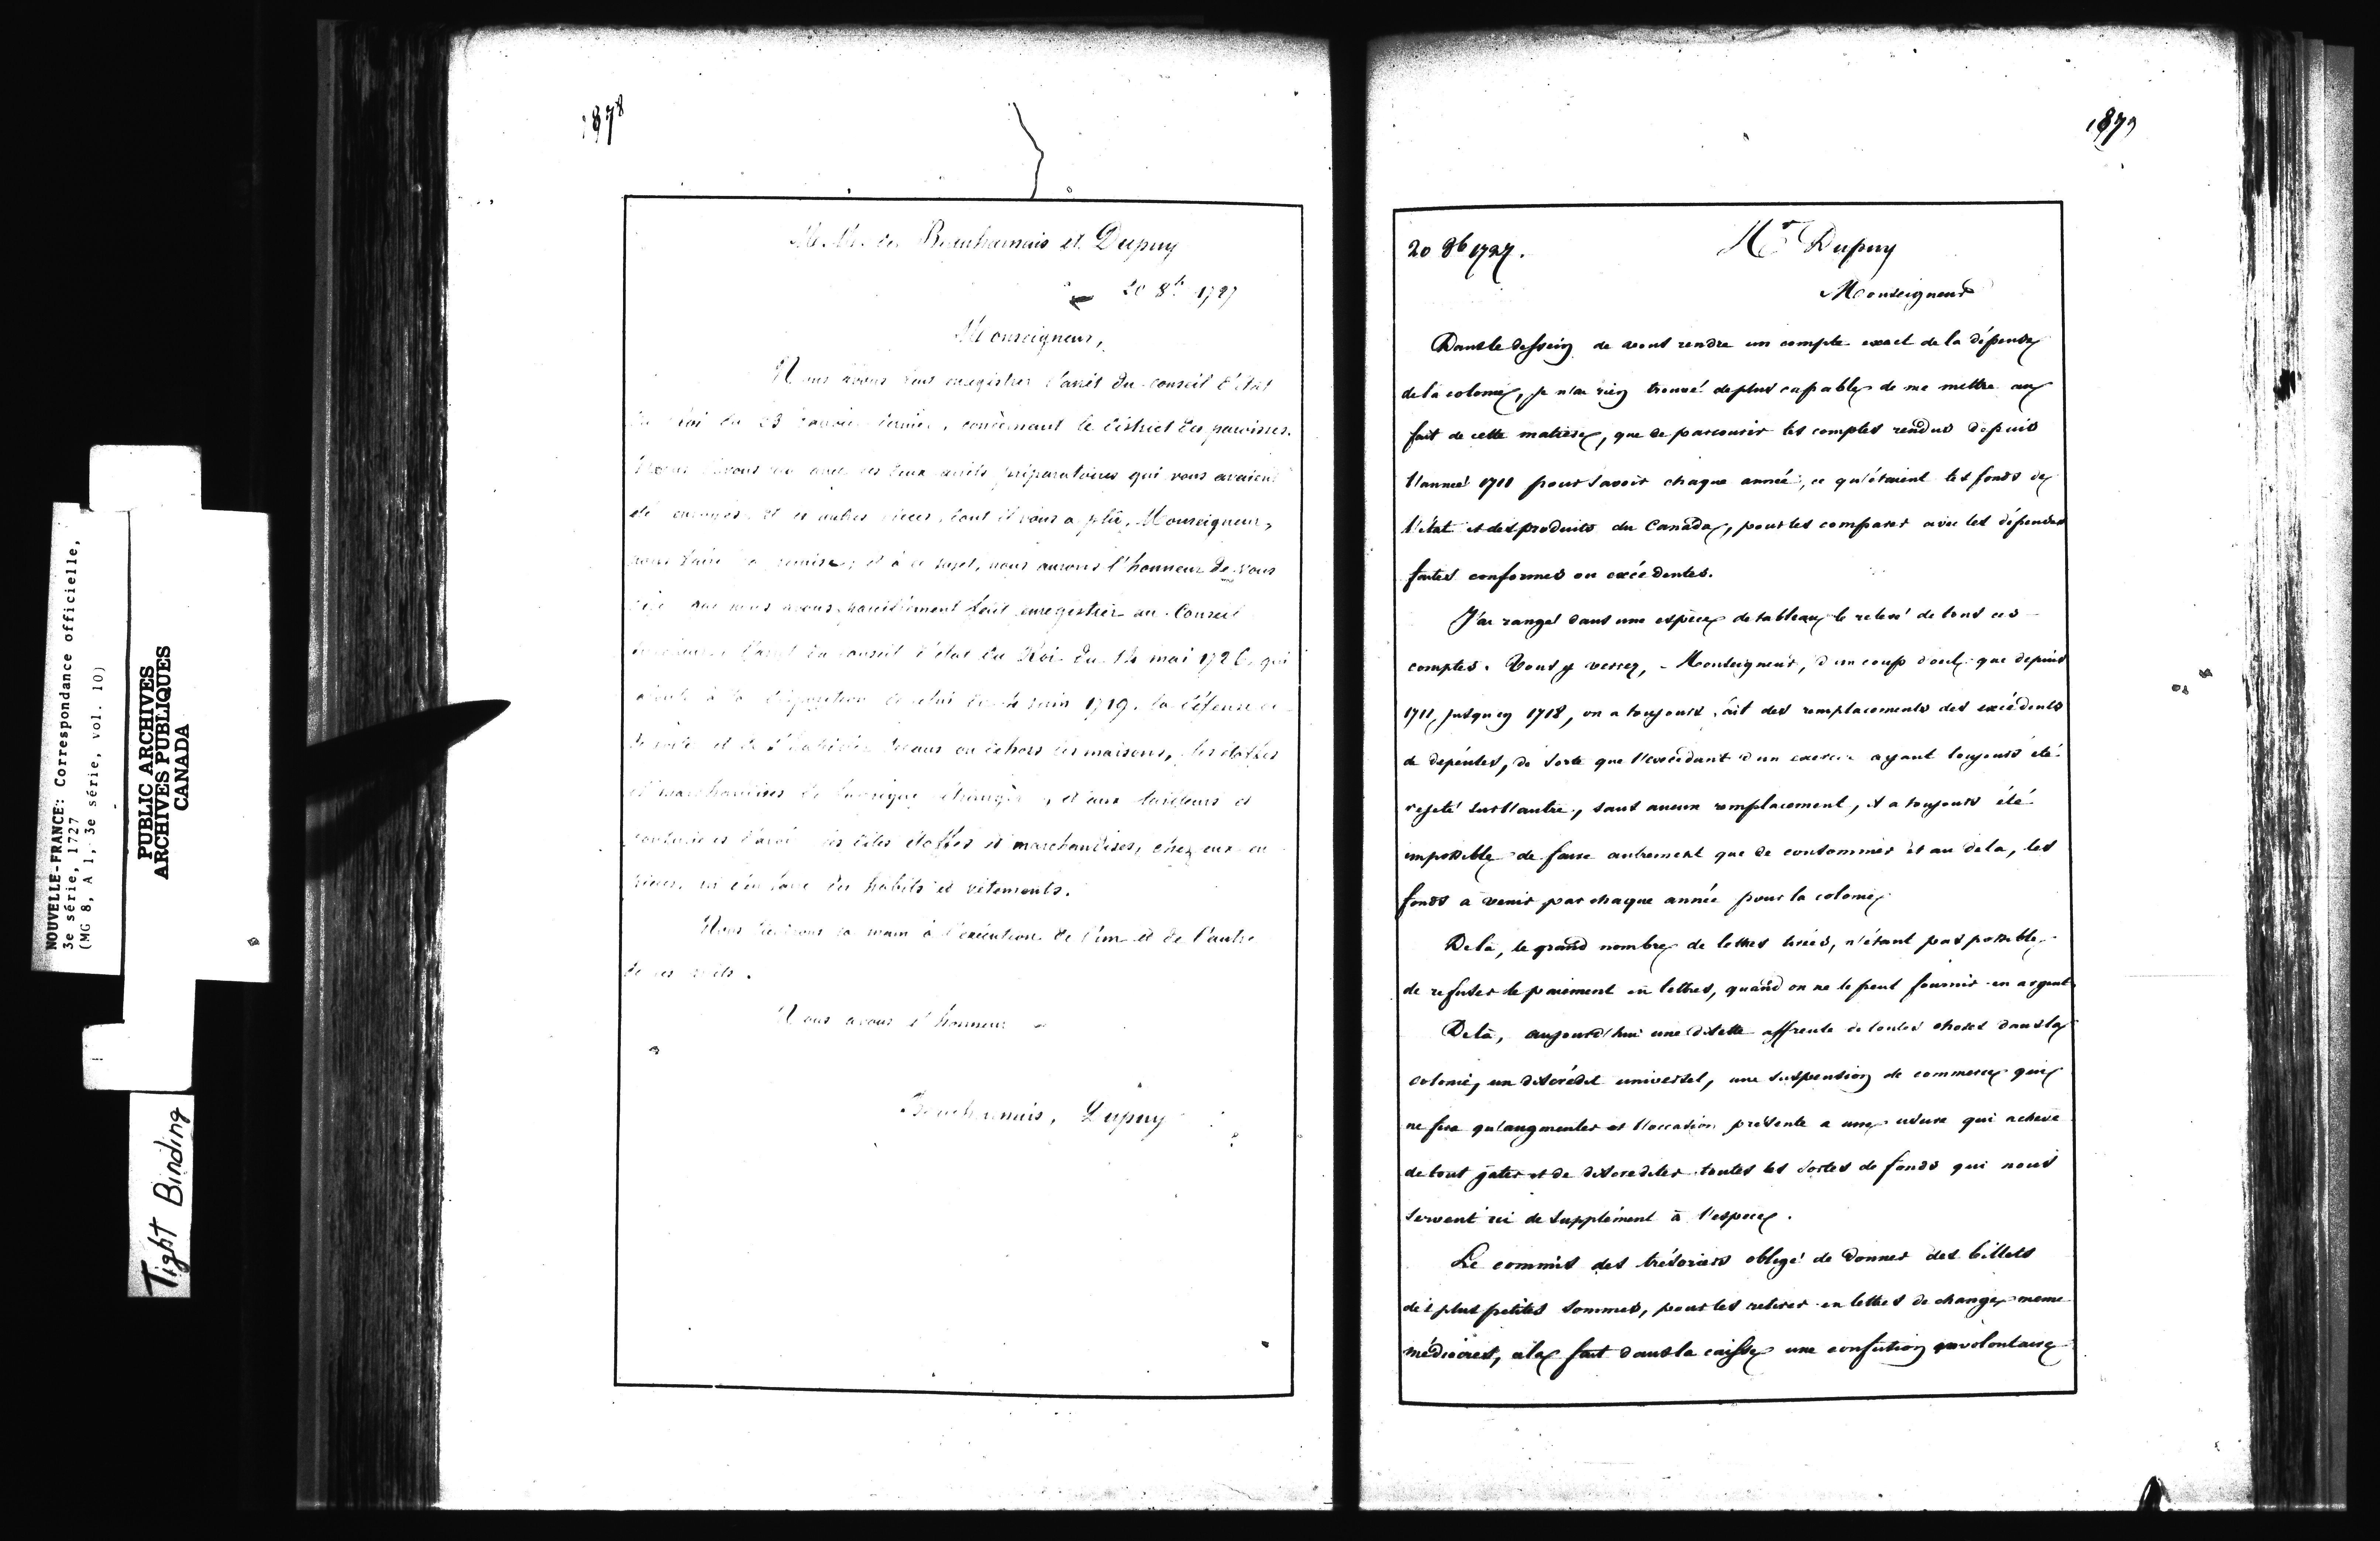 NOUVELLE-FRANCE: Correspondance officielle,
3e série, 1727
(MG 8, A 1, 3e série, vol. 10)
PUBLIC ARCHIVES
ARCHIVES PUBLIQUES
CANADA
Tight Binding
1878
M.M. de Beauharnais et Dupuy
20 8b 1727
Monseigneur,
Nous avons fait enregistrer l'arrêt du conseil d'état
du Roi du 23 janvier dernier, concernant le district des paroisses.
Nous avons vu avec les deux arrêts préparatoires qui vous avaient
été envoyés, et les autres pièces, dont il vous a plû, Monseigneur,
nous faire la remise; et à ce sujet, nous aurons l'honneur de vous
dire que nous avons pareillement fait enregistrer au Conseil
l'arrêt du conseil d'état du Roi du 14 mai 1726, qui
ajoute à la disposition de celui du 4 juin 1719, la défense
dedans ou dehors les maisons, les étoffes
et marchandises de fabrique étrangère, et aux tailleurs et
couturières d'avoir les dites étoffes et marchandises, chez eux
ni d'en faire des habits et vêtements.
Nous tiendrons la main à l'exécution de l'un et de l'autre
de ces arrêts.
Nous avons l'honneur
Beauharnais, Dupuy
1879
20 8b 1727.
Mr Dupuy
Monseigneur
Dans le dessein de vous rendre un compte exact de la dépense
de la colonie, je n'ai rien trouvé de plus capable de me mettre au
fait de cette matière, que de parcourir les comptes rendus depuis
l'année 1711 pour savoir chaque année, ce qu'étaient les fonds de
l'état et des produits du Canada, pour les comparer avec les dépenses
faites conformes ou excédentes.
J'ai rangé dans une espèce de tableau le relevé de tous ces
comptes. Vous y verrez, Monseigneur, d'un coup d'œil que depuis
1711, jusqu'en 1718, on a toujours fait des remplacements des excédents
de dépenses, de sorte que l'excédant d'un exercice ayant toujours été
rejeté sur l'autre, sans aucun remplacement, il a toujours été
impossible de faire autrement que de consommer et au dela, les
fonds à venir par chaque année pour la colonie
De là, le grand nombre de lettres tirées, n'étant pas possible
de refuser le paiement en lettres, quand on ne le peut fournir en argent
De là, aujourd'hui une disette affreuse de toutes choses dans la
colonie, un discrédit universel, une suspension de commerce qui
ne fera qu'augmenter et l'occasion présente a une usure qui achève
de tout gater et de discrediter toutes les sortes de fonds qui nous
servent ici de supplément à l'espèce.
Le commis des trésoriers obligé de donner des billets
des plus petites sommes, pour les retirer en lettres de change meme
médiocres, cela fait dans la caisse une confusion involontaire